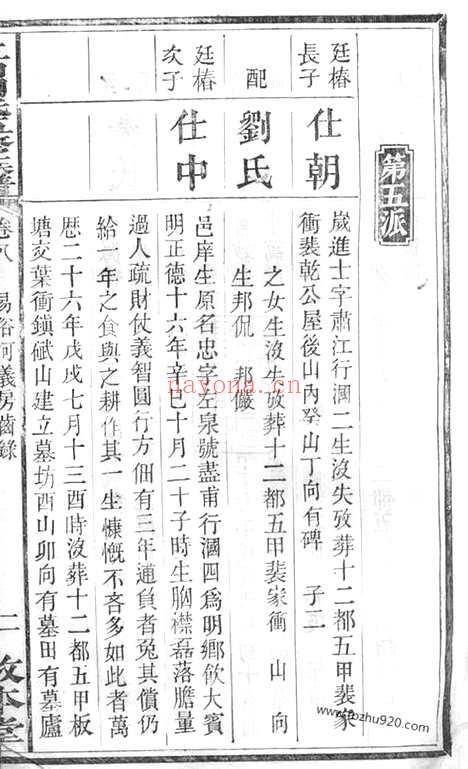 第五派
廷椿
長子
仕朝
歲進士字肅江行溷二生沒失攷葬十二都五甲裴家
衝裴乾公屋後山內癸山丁向有碑 子二
配
劉氏
之女生沒失攷葬十二都五甲裴家衝 山 向
生邦侃 邦儼
廷椿
次子
仕中
邑庠生原名忠字左泉號盡甫行溷四爲明鄉飲大賓
明正德十六年辛巳十月二十子時生胸襟磊落膽量
過人疏財仗義智圓行方佃有三年逋負者免其償仍
給一年之食與之耕作其一生慷慨不吝多如此者萬
歷二十六年戊戌七月十三酉時沒葬十二都五甲板
塘交葉衝鎮碔山建立墓坊酉山卯向有墓田有墓廬
卷八
易谷河義房齒錄
二
敦本堂
nayona.cn
zhu920.com